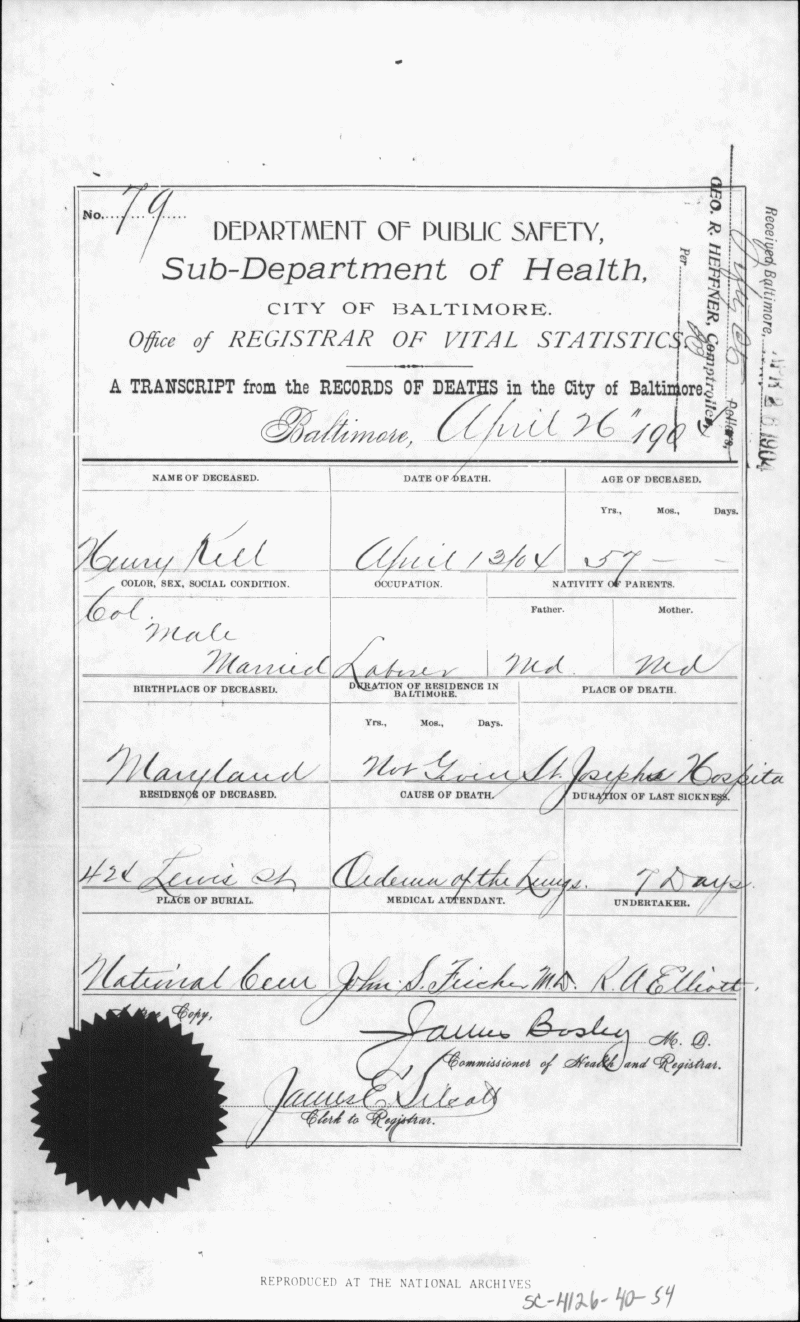 No. 79
DEPARTMENT OF PUBLIC SAFETY,
Sub-Department of Health,
CITY OF BALTIMORE.
Office of REGISTRAR OF VITAL STATISTICS.
A TRANSCRIPT from the RECORDS OF DEATHS in the City of Baltimore.
Baltimore, April 26" 1904
Received, Baltimore, APR 26 1904
Fifty cts Dollars,
GEO. R. HEFFNER, Comptroller,
Per
NAME OF DECEASED. DATE OF DEATH. AGE OF DECEASED.
Yrs., Mos., Days.
Henry Kell April 13/04 57 — —
COLOR, SEX, SOCIAL CONDITION. OCCUPATION. NATIVITY OF PARENTS.
Father. Mother.
Col.
Male
Married Laborer Md. Md
BIRTHPLACE OF DECEASED. DURATION OF RESIDENCE IN BALTIMORE. PLACE OF DEATH.
Yrs., Mos., Days.
Maryland Not Given St Josephs Hospita
RESIDENCE OF DECEASED. CAUSE OF DEATH. DURATION OF LAST SICKNESS.
424 Lewis St Oedema of the Lungs. 7 Days.
PLACE OF BURIAL. MEDICAL ATTENDANT. UNDERTAKER.
National Cem John S. Fischer M.D. R. A Elliott.
Copy,
James Bosley M. D.
Commissioner of Health and Registrar.
James E
Clerk to Registrar.
REPRODUCED AT THE NATIONAL ARCHIVES
SC-4126-40-54